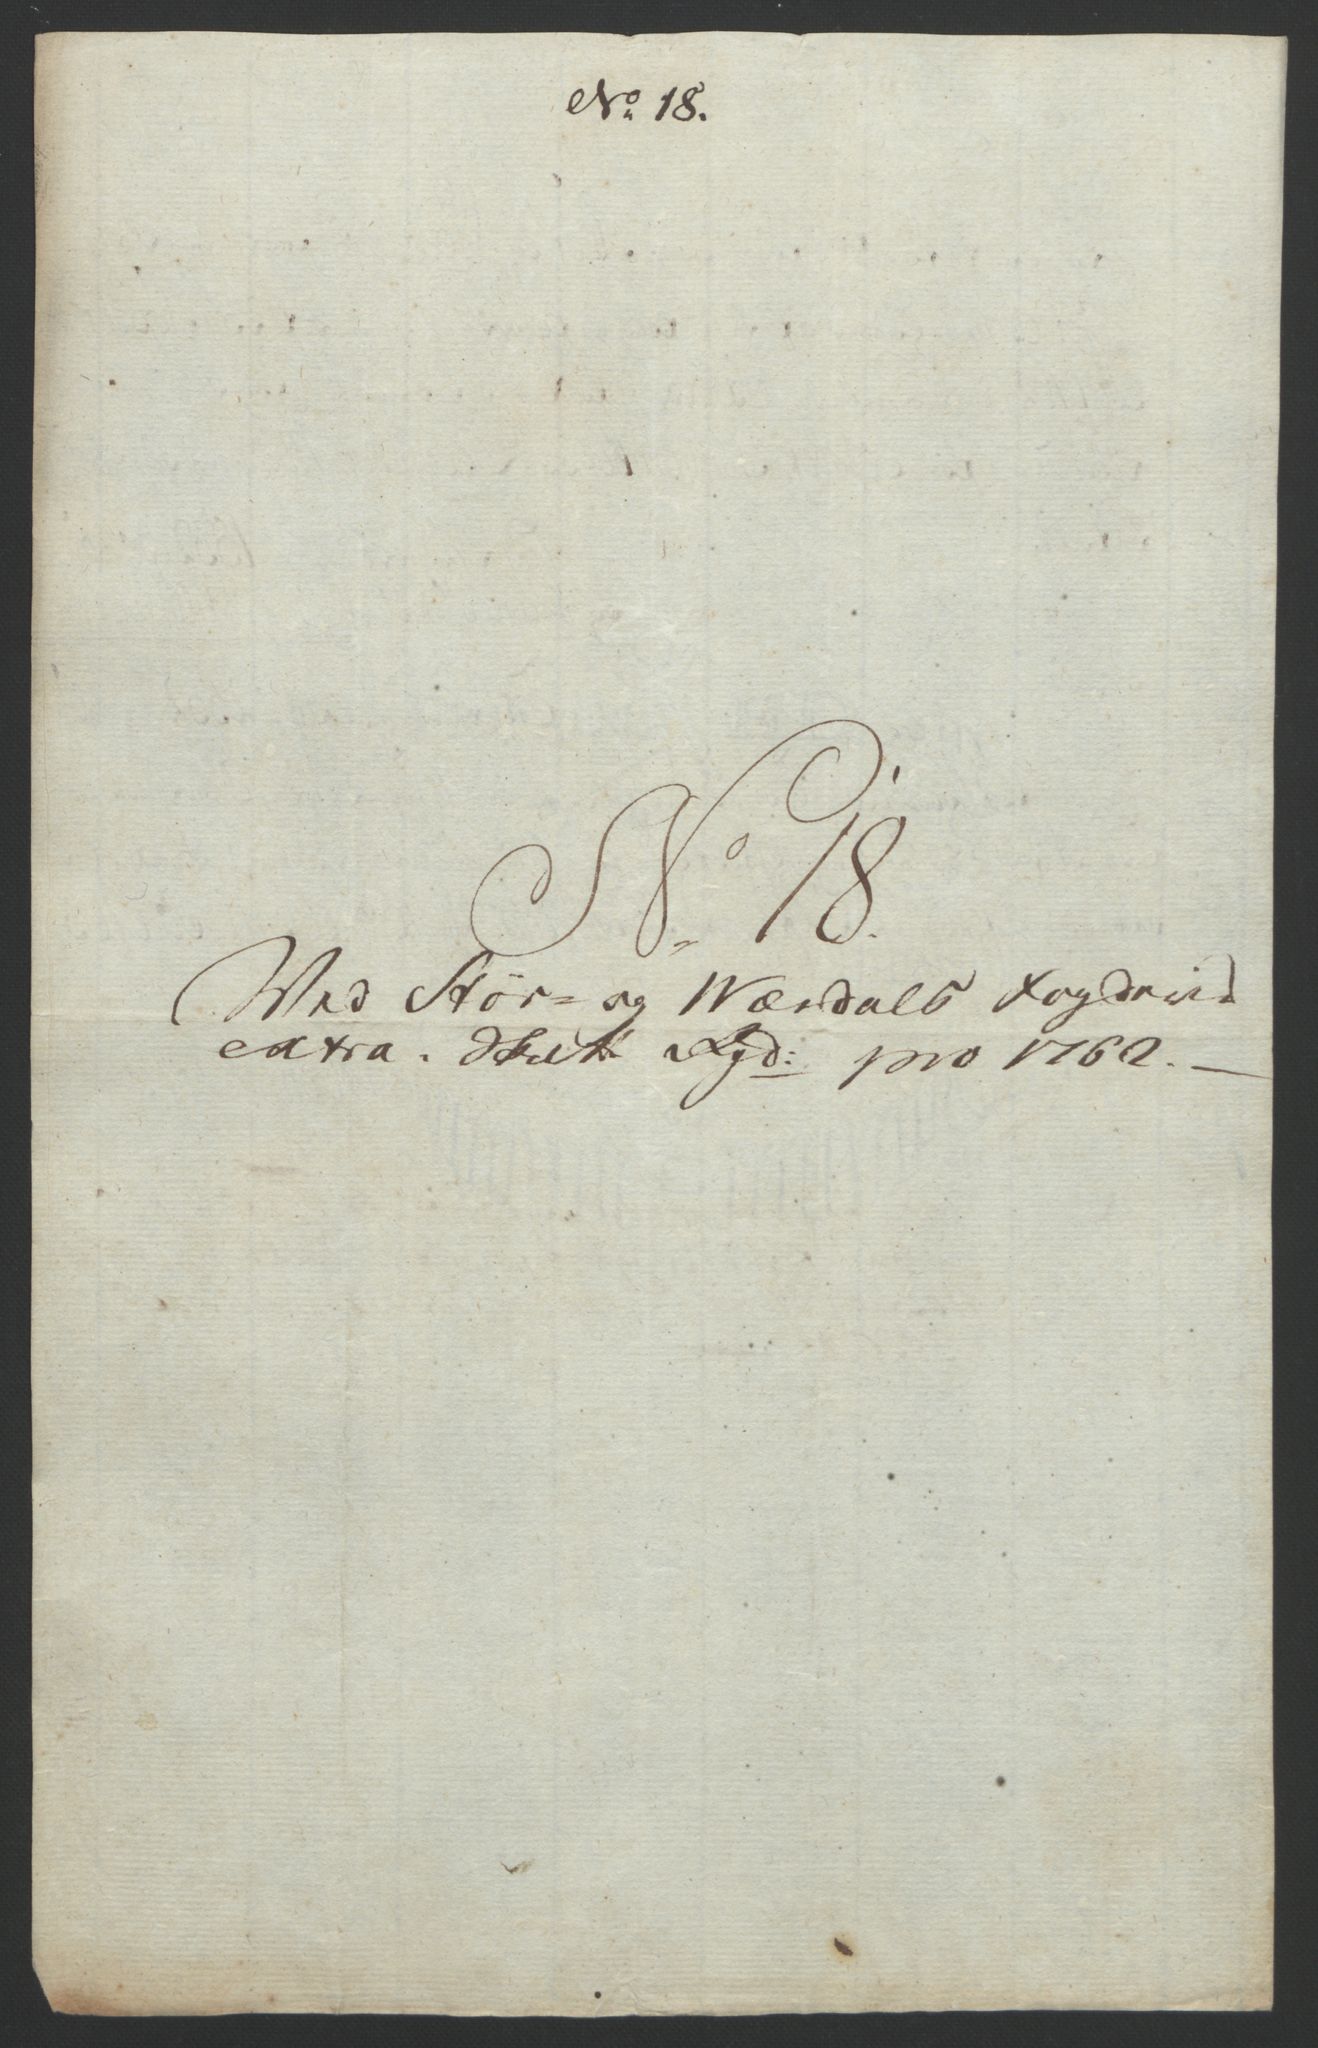 No 18.
No 18.
Ved Stør- og Værdals Fogderies
extra. Skatt Rgd: pro 1762.